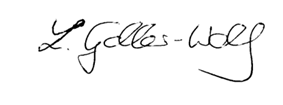 L. Göller-Wolf